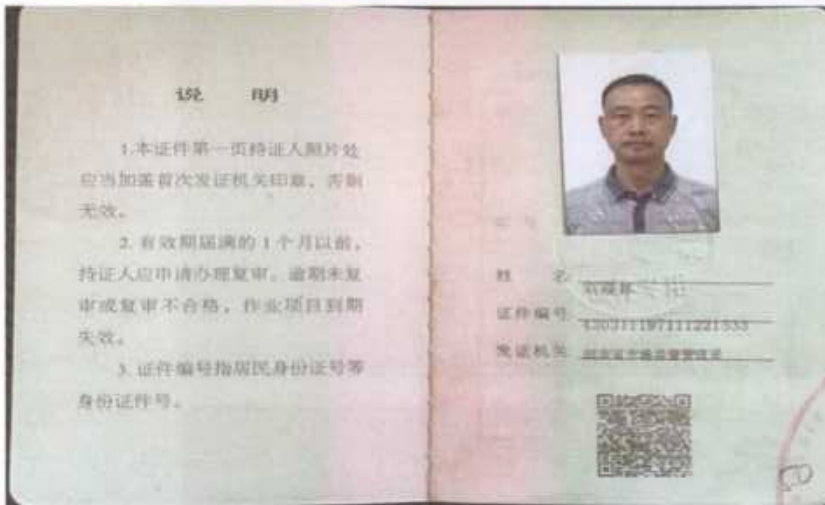 说 明
1.本证件第一页持证人照片处
应当加盖首次发证机关印章，否则
无效。
2. 有效期届满的 1 个月以前，
持证人应申请办理复审。逾期未复
审或复审不合格，作业项目到期
失效。
3. 证件编号指居民身份证号等
身份证件号。
姓 名
证件编号
发证机关